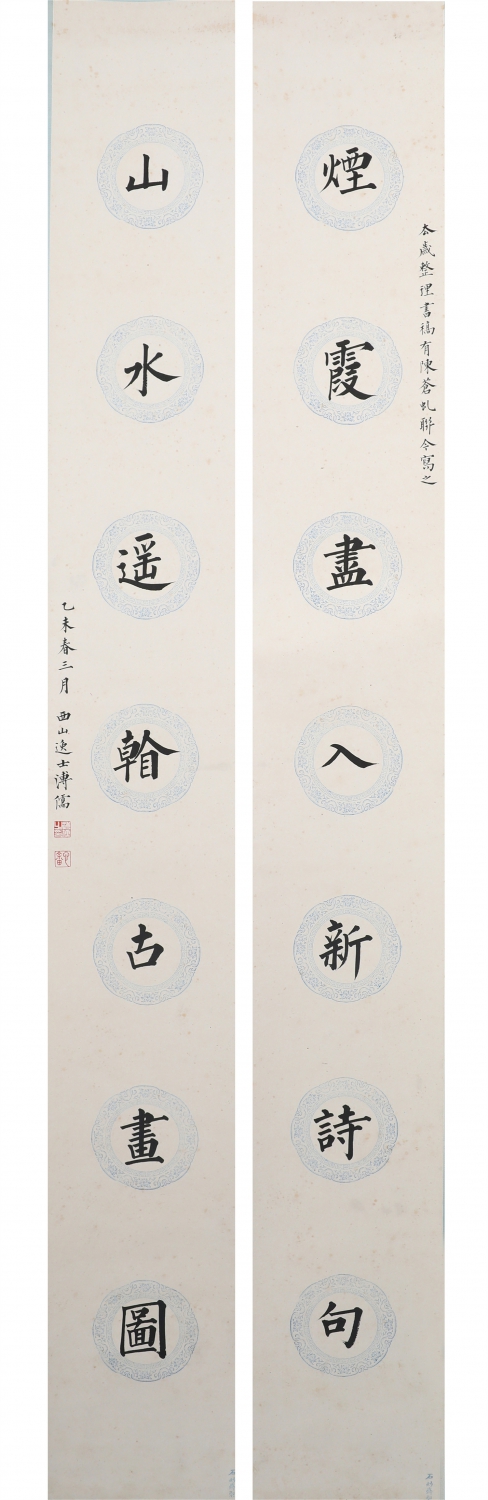 夲歲整理書稿有陳蒼虬聯令寫之
煙霞盡入新詩句
山水遥古畫圖
乙未春三月 西山逸士溥儒